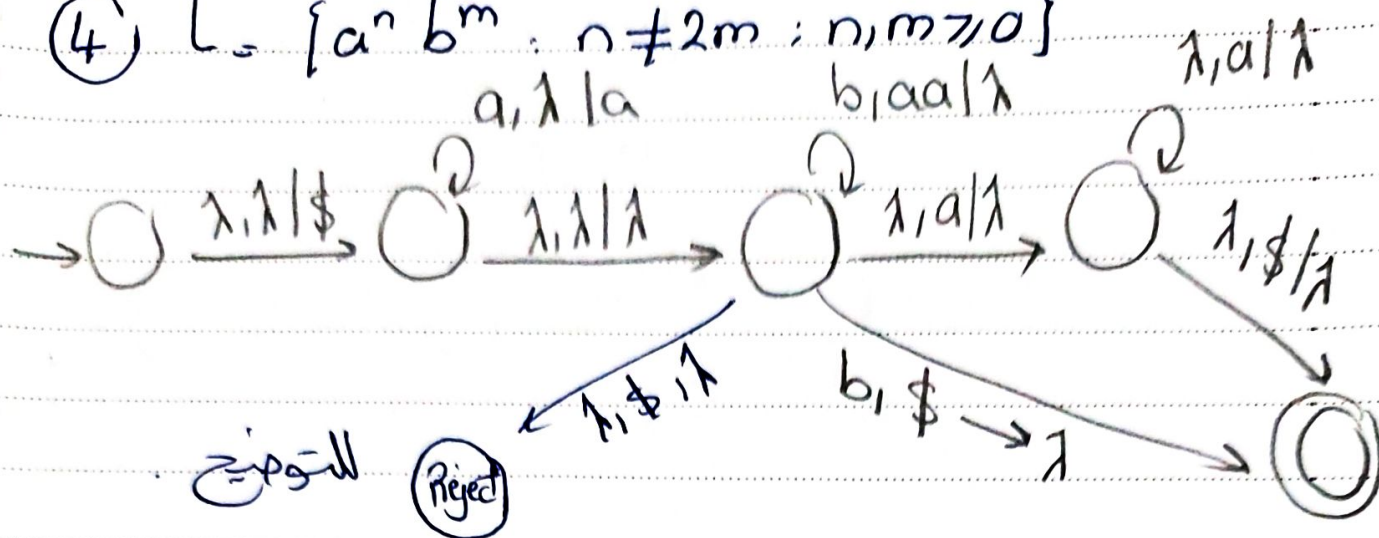 ④, L = {aⁿ bᵐ : n ≠ 2m ; n,m ⩾ 0}
a, λ | a
b, aa | λ
λ, a | λ
λ, λ | $
λ, λ | λ
λ, a | λ
λ, $ / λ
λ, $, λ
b, $ → λ
للتوضيح .
Reject